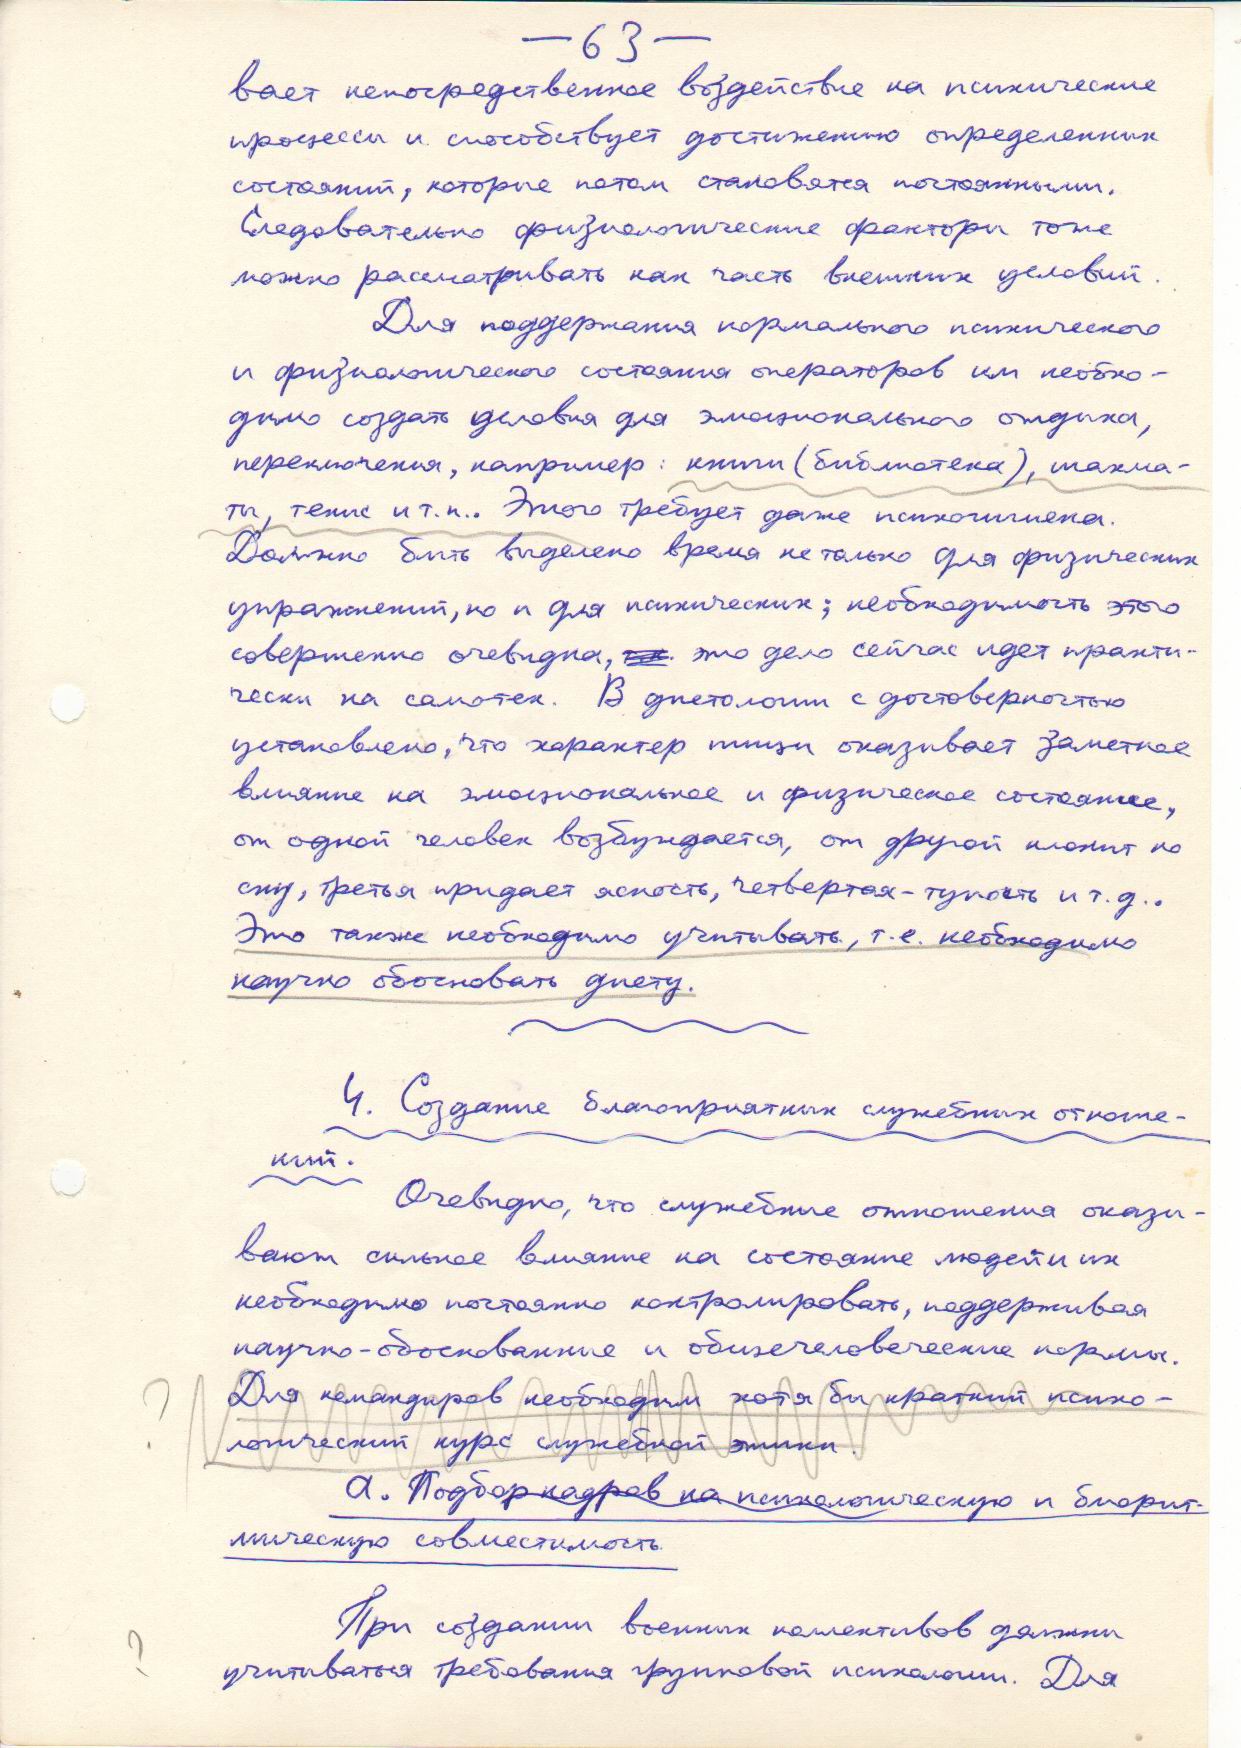 — 63 —
вает непосредственное воздействие на психические
процессы и способствует достижению определенных
состояний, которые потом становятся постоянными.
Следовательно физиологические факторы тоже
можно рассматривать как часть внешних условий.
Для поддержания нормального психического
и физиологического состояния операторов им необхо-
димо создать условия для эмоционального отдыха,
переключения, например: книги (библиотека), шахма-
ты, тенис и т.п.. Этого требует даже психогигиена.
Должно быть выделено время не только для физических
упражнений, но и для психических; необходимость этого
совершенно очевидна, это дело сейчас идет практи-
чески на самотек. В диетологии с достоверностью
установлено, что характер пищи оказывает заметное
влияние на эмоциональное и физическое состояние,
от одной человек возбуждается, от другой клонит ко
сну, третья придает ясность, четвертая - тупость и т.д..
Это также необходимо учитывать, т.е. необходимо
научно обосновать диету.
4. Создание благоприятных служебных отноше-
ний.
Очевидно, что служебные отношения оказы-
вают сильное влияние на состояние людей и их
необходимо постоянно контролировать, поддерживая
научно-обоснованные и общечеловеческие нормы.
? Для командиров необходим хотя бы краткий психо-
логический курс служебной этики.
а. Подбор кадров на психологическую и биорит-
мическую совместимость.
При создании военных коллективов должны
? учитываться требования групповой психологии. Для